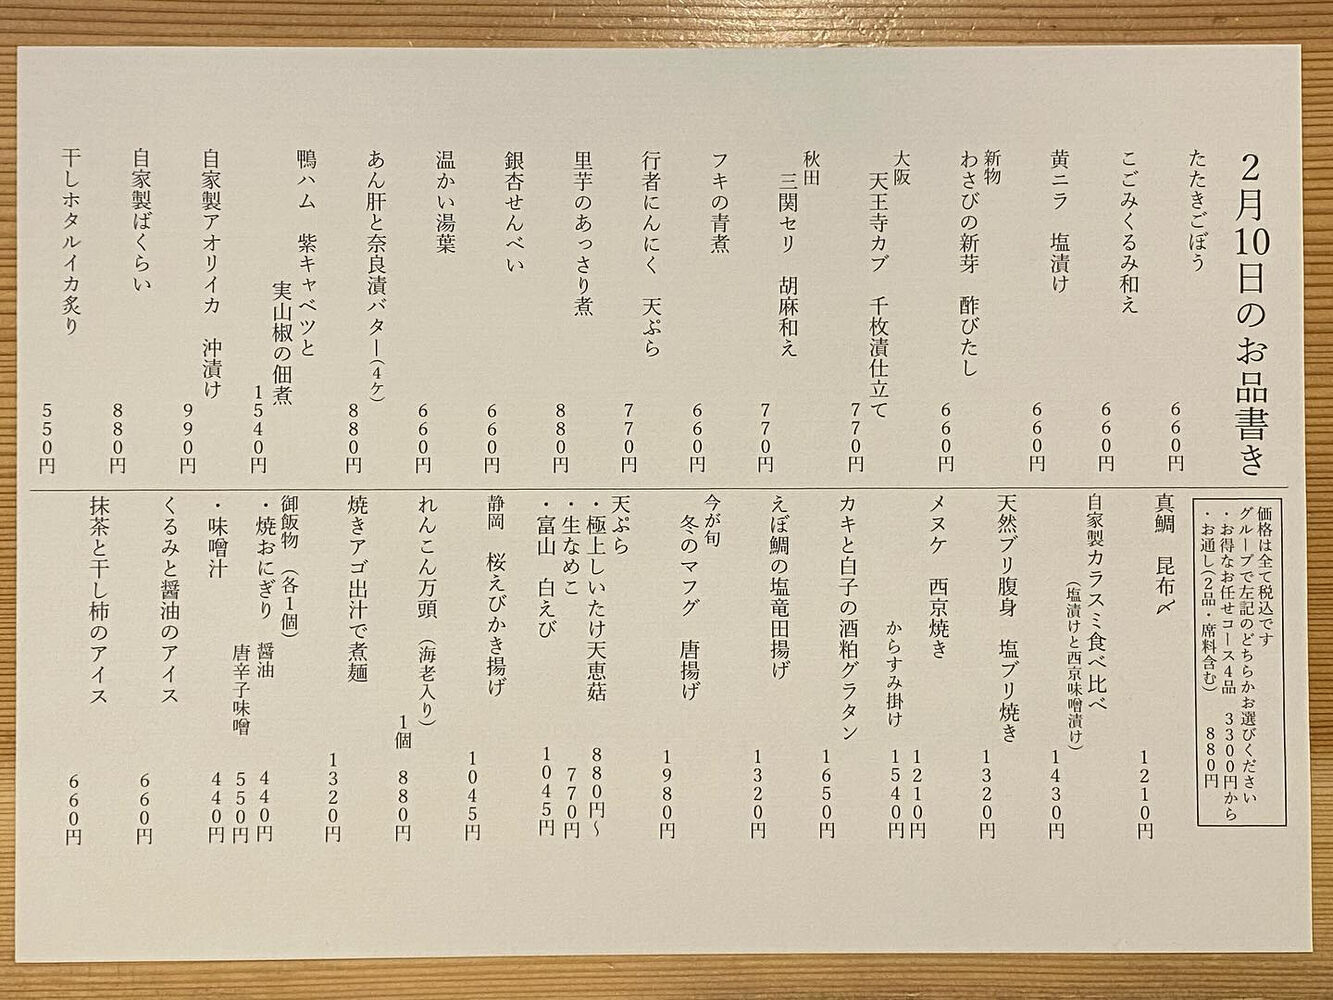 2月10日のお品書き
たたきごぼう
660円
こごみくるみ和え
660円
黄ニラ 塩漬け
660円
新物
わさびの新芽 酢びたし
660円
大阪
天王寺カブ 千枚漬仕立て
770円
秋田
三関セリ 胡麻和え
770円
フキの青煮
660円
行者にんにく 天ぷら
770円
里芋のあっさり煮
880円
銀杏せんべい
660円
温かい湯葉
660円
あん肝と奈良漬バター(4ケ)
880円
鴨ハム 紫キャベツと
実山椒の佃煮
1540円
自家製アオリイカ 沖漬け
990円
自家製ばくらい
880円
干しホタルイカ炙り
550円
価格は全て税込です
グループで左記のどちらかお選びください
・お得なお任せコース4品 3300円から
・お通し(2品・席料含む) 880円
真鯛 昆布〆
1210円
自家製カラスミ食べ比べ
(塩漬けと西京味噌漬け)
1430円
天然ブリ腹身 塩ブリ焼き
1320円
メヌケ 西京焼き
1210円
からすみ掛け
1540円
カキと白子の酒粕グラタン
1650円
えぼ鯛の塩竜田揚げ
1320円
今が旬
冬のマフグ 唐揚げ
1980円
天ぷら
・極上しいたけ天恵菇
880円〜
・生なめこ
770円
・富山 白えび
1045円
静岡 桜えびかき揚げ
1045円
れんこん万頭 (海老入り)
1個 880円
焼きアゴ出汁で煮麺
1320円
御飯物 (各1個)
・焼おにぎり 醤油
440円
唐辛子味噌
550円
・味噌汁
440円
くるみと醤油のアイス
660円
抹茶と干し柿のアイス
660円